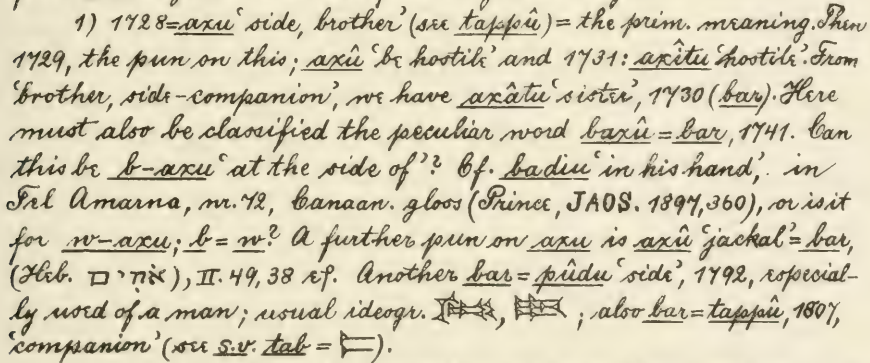 1) 1728=axu ‘side, brother’ (see tappû) = the prim. meaning. Then
1729, the pun on this; axû ‘be hostile’ and 1731: axîtu ‘hostile’. From
‘brother, side-companion’, we have axâtu ‘sister’, 1730 (bar). Here
must also be classified the peculiar word baxû = bar, 1741. Can
this be b-axu ‘at the side of’? Cf. badiu ‘in his hand’, in
Tel Amarna, nr. 72, Canaan. gloos (Prince, JAOS. 1897, 360), or is it
for w-axu; b = w? A further pun on axu is axû ‘jackal’ = bar,
(Heb. אחים), II. 49, 38 ef. Another bar = pûdu ‘side’, 1792, especial-
ly used of a man; usual ideogr. , ; also bar = tappû, 1807,
‘companion’ (see s.v. tab = ).